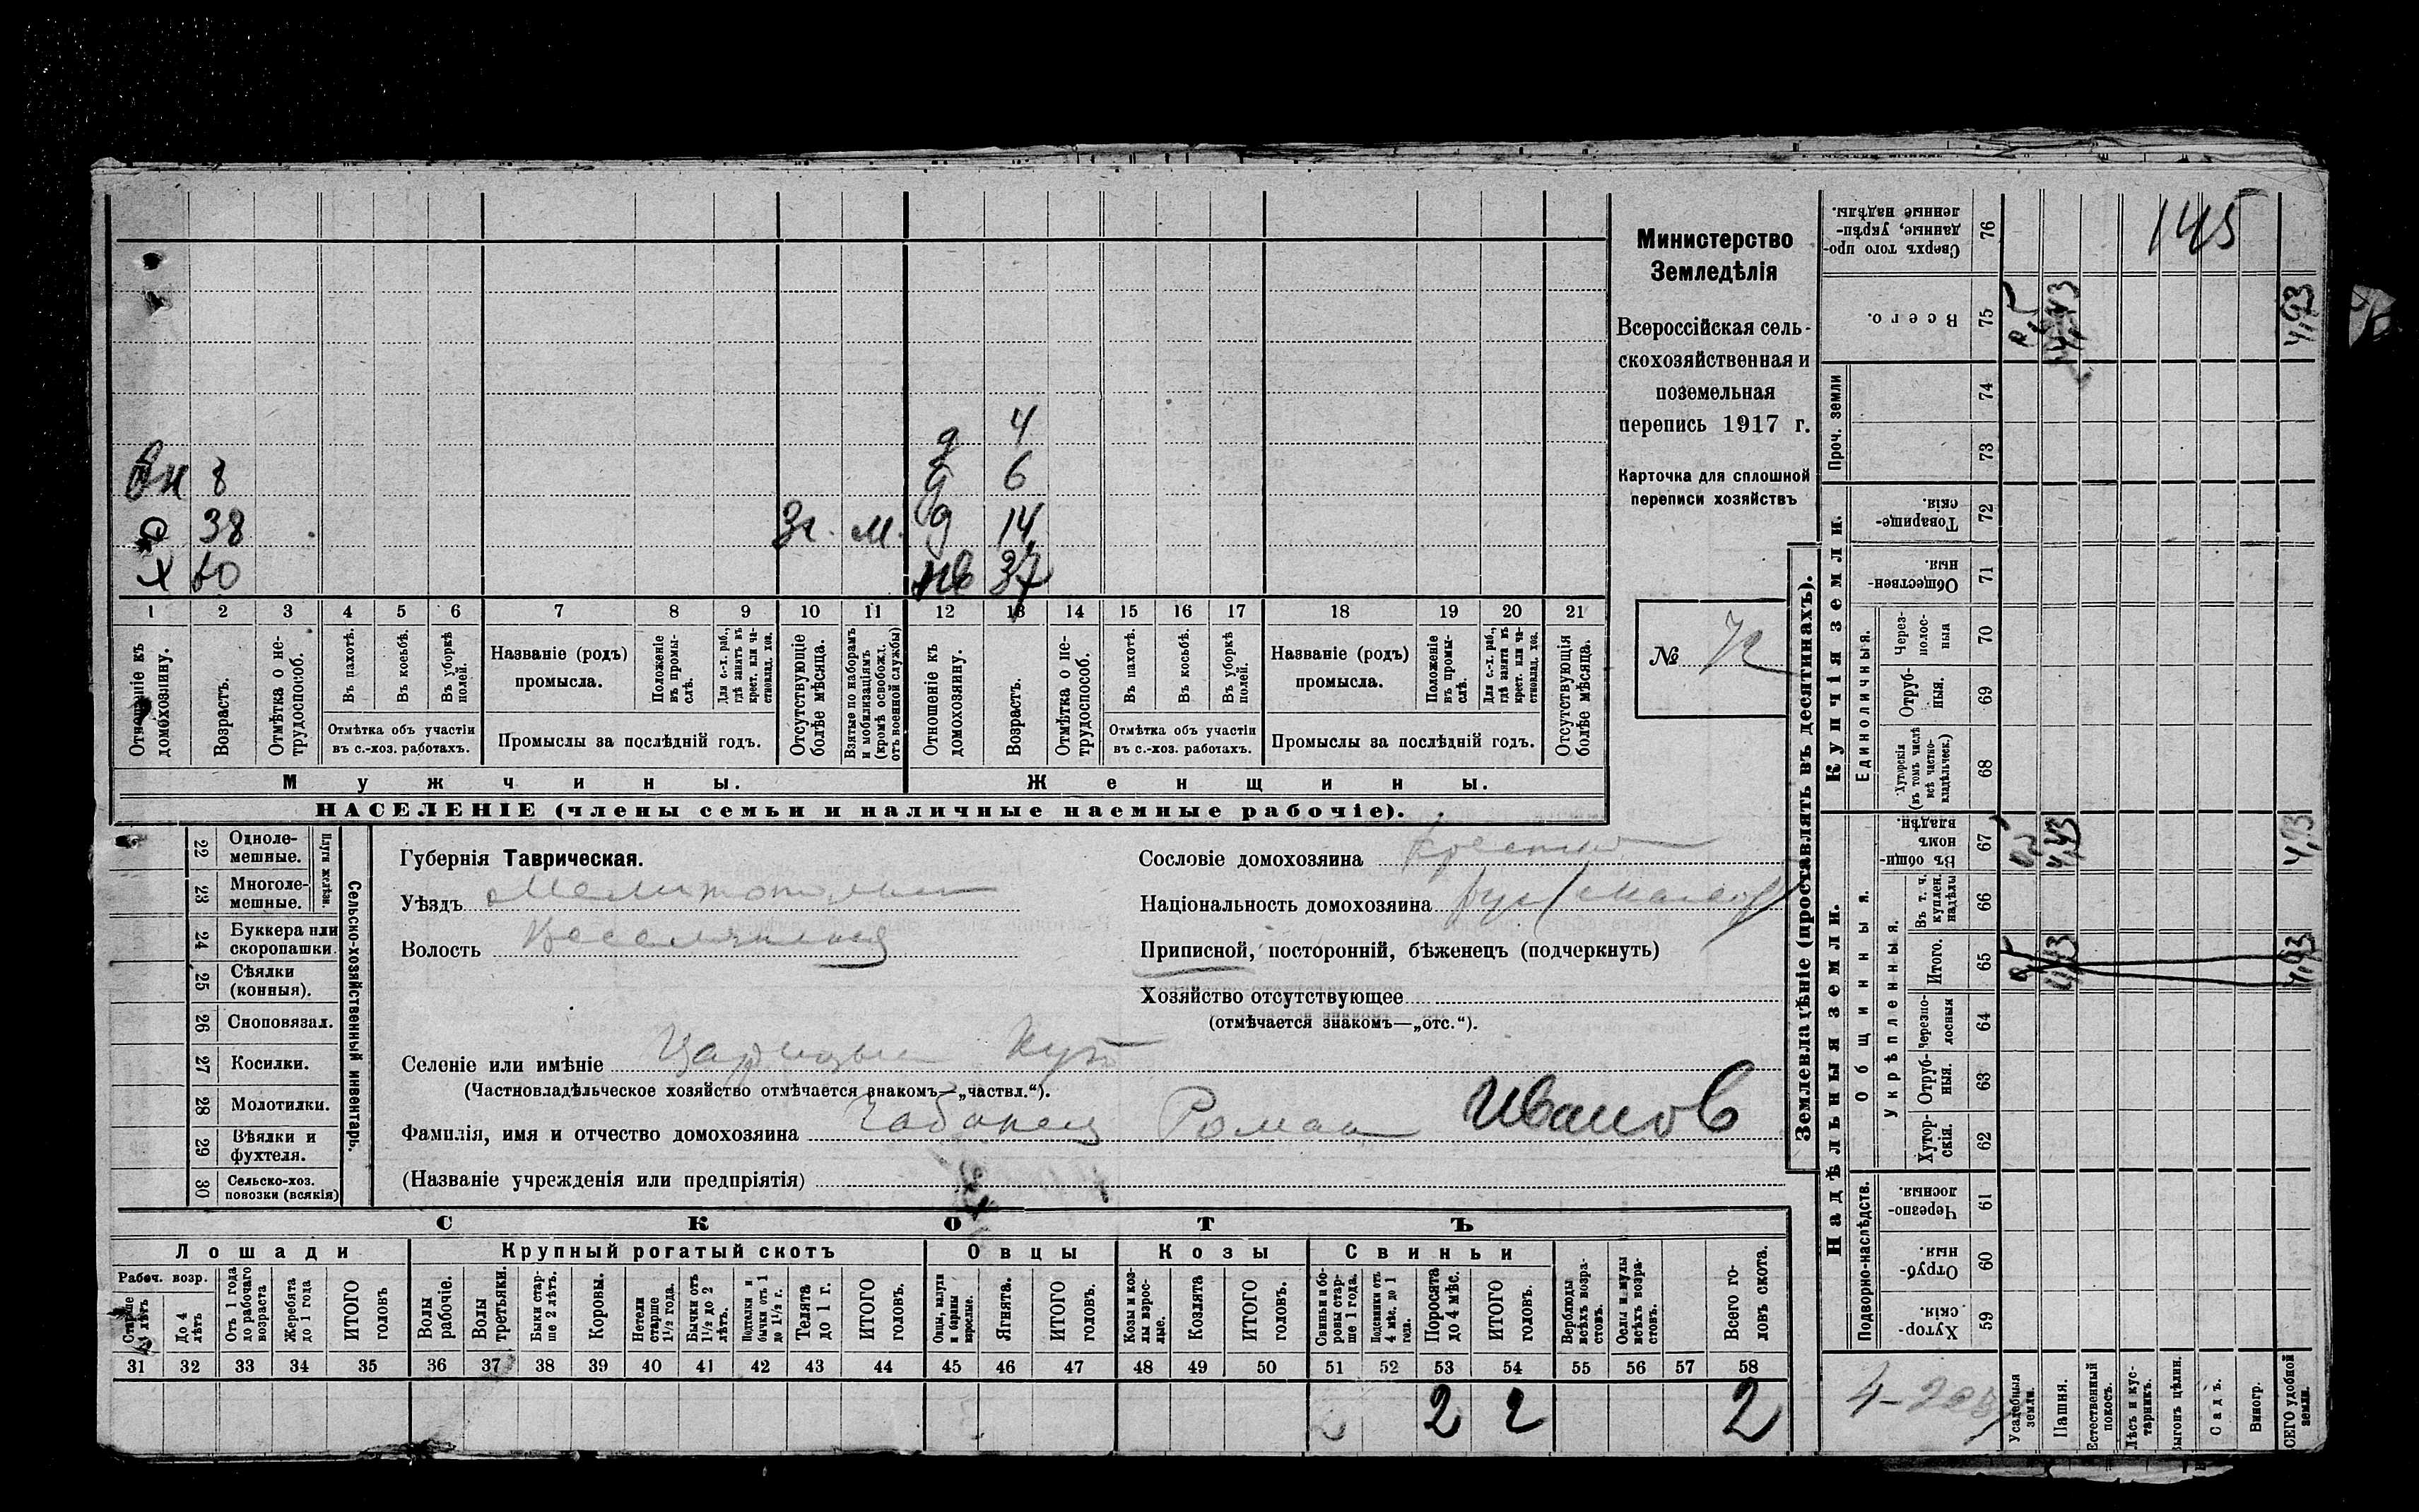 Министерство
Земледѣлія
Всероссійская сель-
скохозяйственная и
поземельная
перепись 1917 г.
Карточка для сплошной
переписи хозяйствъ
№ 72
145
4
8 6
38 Зг. м. д 14
Х 60 37
1 2 3 4 5 6 7 8 9 10 11 12 13 14 15 16 17 18 19 20 21
Отношеніе къ домохозяину.
Возрастъ.
Отмѣтка о не-трудоспособ.
Въ пахотѣ.
Въ косьбѣ.
Въ уборкѣ полей.
Отмѣтка объ участіи въ с.-хоз. работахъ.
Названіе (родъ) промысла.
Положеніе въ промы-слѣ.
Для с.-х. раб., гдѣ занятъ въ крест. или ча-стновлад. хоз.
Промыслы за послѣдній годъ.
Отсутствующіе болѣе мѣсяца.
Взятые по наборамъ и мобилизаціямъ (кромѣ освобожд. отъ военной службы)
Отношеніе къ домохозяину.
Возрастъ.
Отмѣтка о не-трудоспособ.
Въ пахотѣ.
Въ косьбѣ.
Въ уборкѣ полей.
Отмѣтка объ участіи въ с.-хоз. работахъ.
Названіе (родъ) промысла.
Положеніе въ промы-слѣ.
Для с.-х. раб., гдѣ занята въ крест. или ча-стновлад. хоз.
Промыслы за послѣдній годъ.
Отсутствующія болѣе мѣсяца.
Мужчины. Женщины.
НАСЕЛЕНІЕ (члены семьи и наличные наемные рабочіе).
Сельско-хозяйственный инвентарь.
Плуги желѣзн.
22 Одноле-мешные.
23 Многоле-мешные.
24 Буккера или скоропашки.
25 Сѣялки (конныя).
26 Сноповязал.
27 Косилки.
28 Молотилки.
29 Вѣялки и фухтеля.
30 Сельско-хоз. повозки (всякія)
Губернія Таврическая.
Уѣздъ Мелитопольск
Волость Веселянская
Селеніе или имѣніе Царицын Кут
(Частновладѣльческое хозяйство отмѣчается знакомъ—„частвл.“).
Фамилія, имя и отчество домохозяина Чабанец Роман Иванов
(Названіе учрежденія или предпріятія)
Сословіе домохозяина Крестья
Національность домохозяина рус (малор)
Приписной, посторонній, бѣженецъ (подчеркнуть)
Хозяйство отсутствующее
(отмѣчается знакомъ—„отс.“).
СКОТЪ
Лошади Крупный рогатый скотъ Овцы Козы Свиньи
Рабоч. возр.
Старше лѣтъ
До 4 лѣтъ
Отъ 1 года до рабочаго возраста
Жеребята до 1 года
ИТОГО головъ
Волы рабочіе.
Волы третьяки.
Быки стар-ше 2 лѣтъ.
Коровы.
Нетели старше 1½ года.
Бычки отъ 1½ до 2 лѣтъ.
Подтелки и бычки отъ 1 до 1½ г.
Телята до 1 г.
ИТОГО головъ.
Овцы, валухи и бараны взрослые.
Ягнята.
ИТОГО головъ.
Козы и коз-лы взрос-лые.
Козлята
ИТОГО головъ.
Свиньи и бо-ровы стар-ше 1 года.
Подсвинки отъ 4 мѣс. до 1 года.
Поросята до 4 мѣс.
ИТОГО головъ.
Верблюды всѣхъ возра-стовъ.
Ослы и мулы всѣхъ возра-стовъ.
Всего го-ловъ скота.
31 32 33 34 35 36 37 38 39 40 41 42 43 44 45 46 47 48 49 50 51 52 53 54 55 56 57 58
2 2 2
Землевладѣніе (проставлять въ десятинахъ).
Купчія земли.
Надѣльныя земли.
76 Сверхъ того про-данные, укрѣп-ленные надѣлы.
75 Всего. 4,43 4,93
Проч. земли
74
73
72 Товарище-скія.
71 Обществен-ныя.
Единоличныя.
70 Через-полос-ныя
69 Отруб-ныя.
68 Хуторскія (въ томъ числѣ всѣ частно-владѣльческ.)
Общинныя.
67 Въ общи-номъ владѣн. 4,43 4,93
Укрѣпленныя.
66 Въ т. ч. куплен. надѣлы
65 Итого. 4,43 4,93
64 Черезпо-лосныя
63 Отруб-ныя.
62 Хутор-скія.
Подворно-наслѣдств.
61 Черезпо-лосныя.
60 Отруб-ныя.
59 Хутор-скія.
Усадебныя земли.
Пашня.
Естественный покосъ.
Лѣсъ и кус-тарникъ.
Выгонъ цѣлин.
Садъ.
Виногр.
ВСЕГО удобной земли.